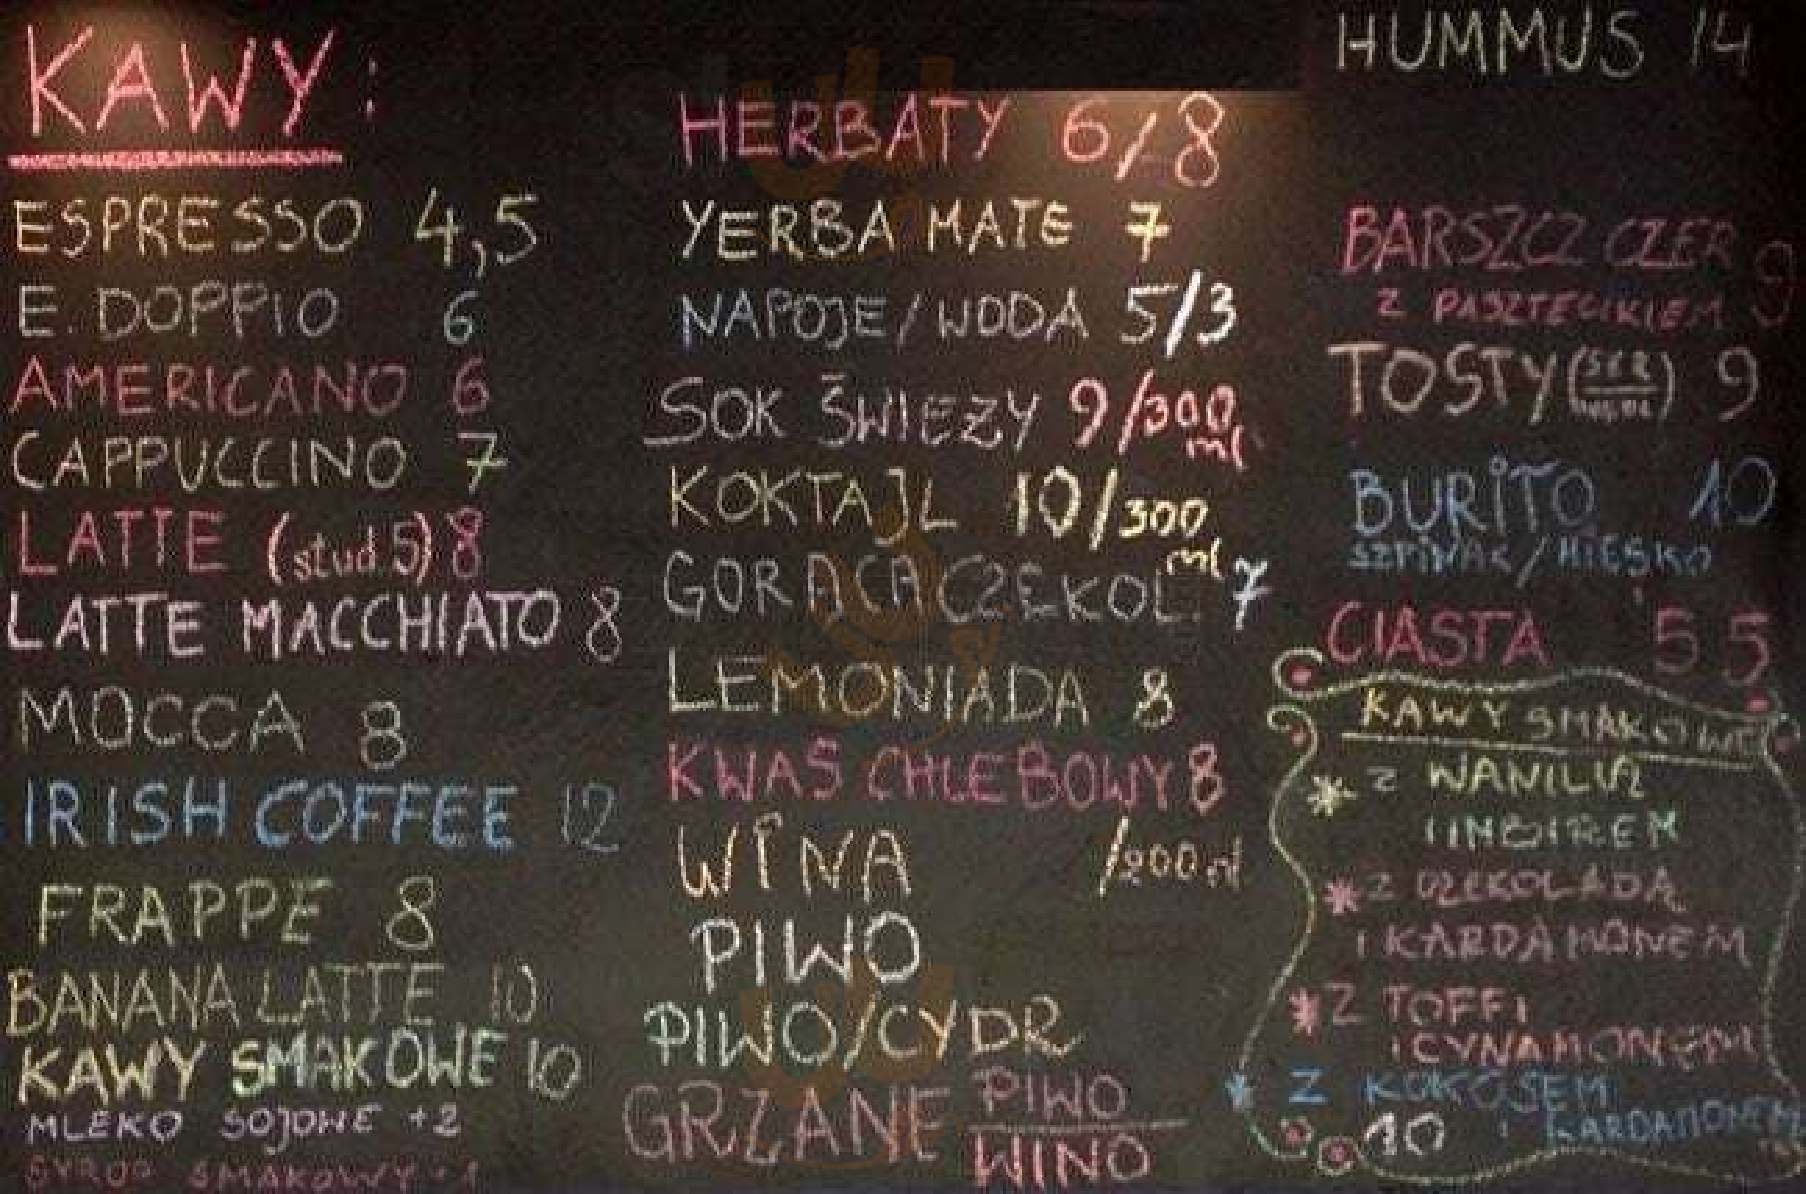 KAWY:
ESPRESSO 4,5
E. DOPPIO 6
AMERICANO 6
CAPPUCCINO 7
LATTE (stud.5) 8
LATTE MACCHIATO 8
MOCCA 8
IRISH COFFEE 12
FRAPPE 8
BANANA LATTE 10
KAWY SMAKOWE 10
MLEKO SOJOWE +2
SYROP SMAKOWY +1
HERBATY 6/8
YERBA MATE 7
NAPOJE/WODA 5/3
SOK ŚWIEŻY 9/300 ml
KOKTAJL 10/300 ml
GORĄCA CZEKOL. 7
LEMONIADA 8
KWAS CHLEBOWY 8
WINA /200 ml
PIWO
PIWO/CYDR
GRZANE PIWO
WINO
HUMMUS 14
BARSZCZ CZER 9
Z PASZTECIKIEM
TOSTY (SER) 9
BURITO 10
SZPINAK/MIĘSKO
CIASTA 5 5
KAWY SMAKOWE
* Z WANILIĄ
I IMBIREM
* Z CZEKOLADĄ
I KARDAMONEM
* Z TOFFI
I CYNAMONEM
* Z KOKOSEM
10 I KARDAMONEM